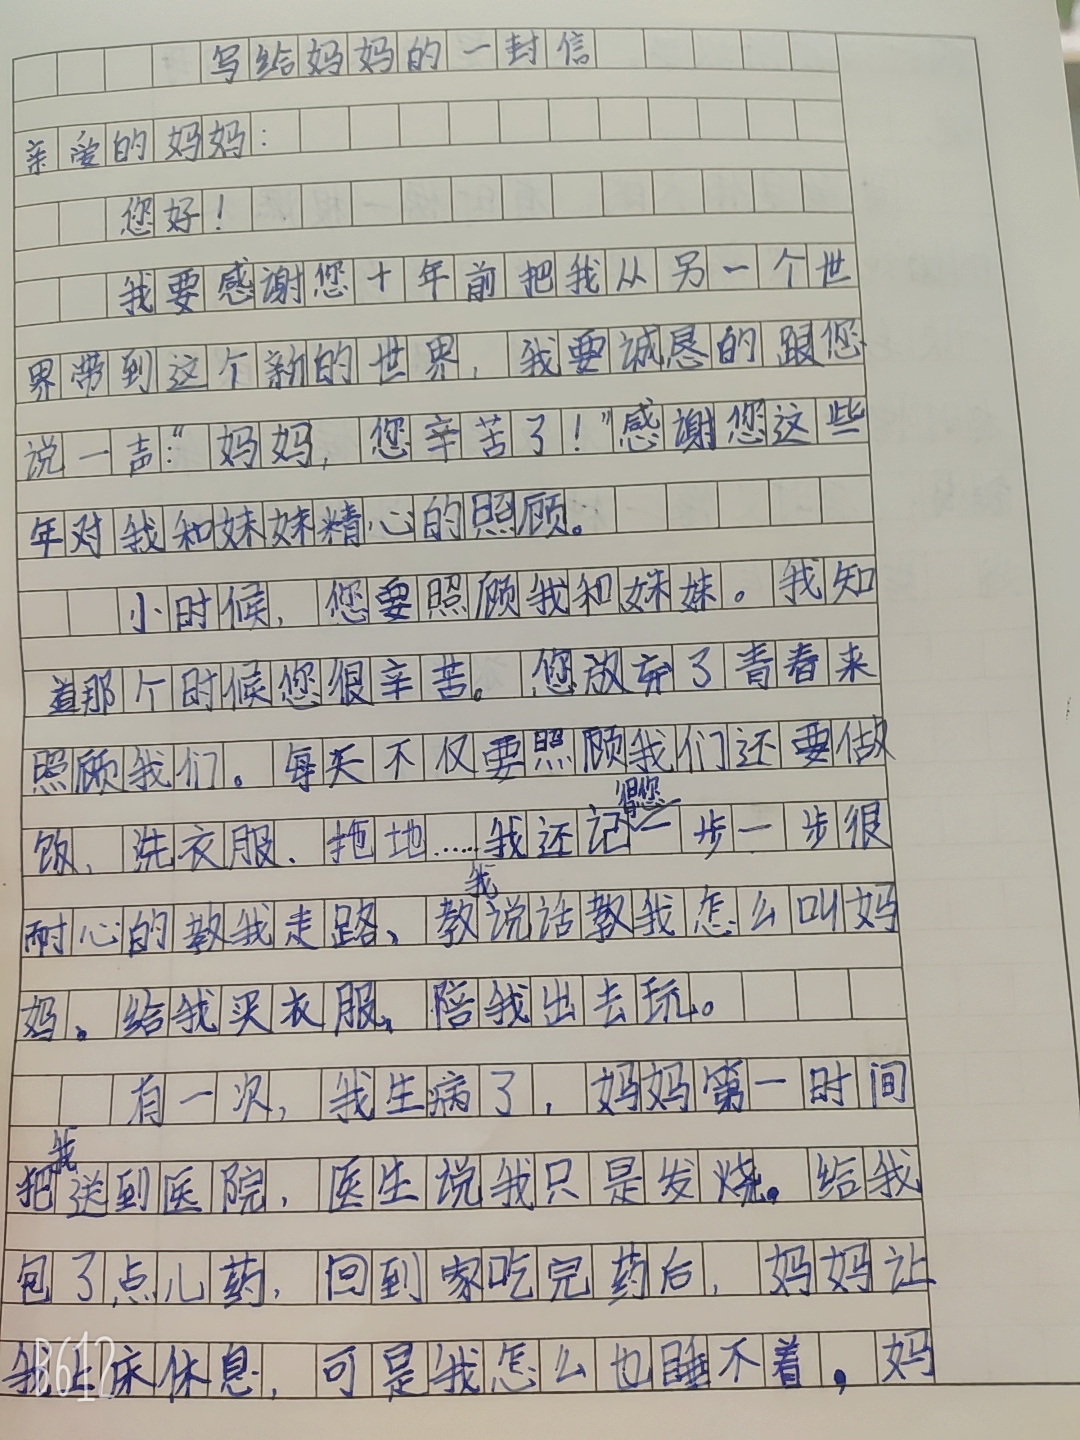 写给妈妈的一封信
亲爱的妈妈：
您好！
我要感谢您十年前把我从另一个世
界带到这个新的世界，我要诚恳的跟您
说一声：“妈妈，您辛苦了！”感谢您这些
年对我和妹妹精心的照顾。
小时候，您要照顾我和妹妹。我知
道那个时候您很辛苦。您放弃了青春来
照顾我们。每天不仅要照顾我们还要做
饭、洗衣服、拖地……我还记得您一步一步很
耐心的教我走路、教我说话教我怎么叫妈
妈。给我买衣服、陪我出去玩。
有一次，我生病了，妈妈第一时间
把我送到医院，医生说我只是发烧。给我
包了点儿药，回到家吃完药后，妈妈让
我上床休息，可是我怎么也睡不着，妈
B612